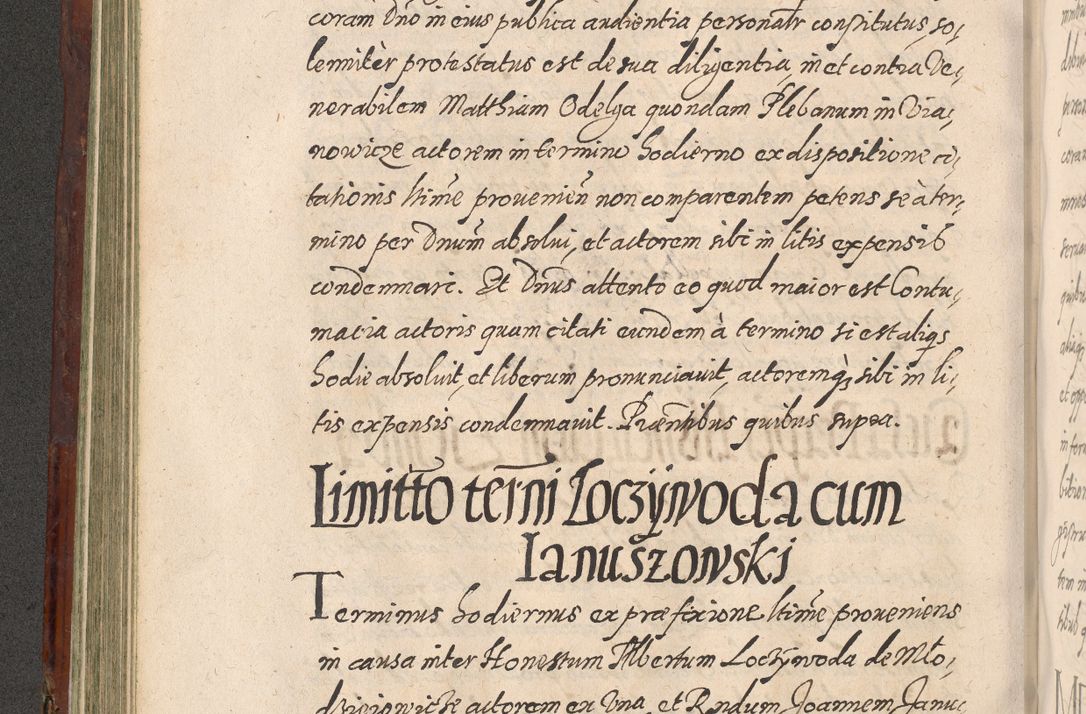 coram Dno in eius publica audientia personalr constitutus, so,
lemniter protestatus est de sua diligentia, in et contra Ve,
nerabilem Matthiam Odelga quondam Plebanum in Via,
nowicze actorem in termino hodierno ex dispositione ci,
tationis ltime provenien non comparentem petens se à ter,
mino per Dnum absolvi, et actorem sibi in litis expensis
condemnari. Et Dnus attento eo quod maior est Contu,
macia actoris quam citati eundem à termino si est aliqs
hodie absolvit, et liberum pronunciavit, actoremq sibi in li,
tis expensis condemnavit. Præntibus quibus supra.
Limitto terni Loczijwoda cum
Ianuszowski
Terminus hodiernus ex præfixione ltime proveniens
in causa inter Honestum Albertum Loczijwoda de Mło,
dzieiowicze actorem ex una, et Rndum Joannem Janu